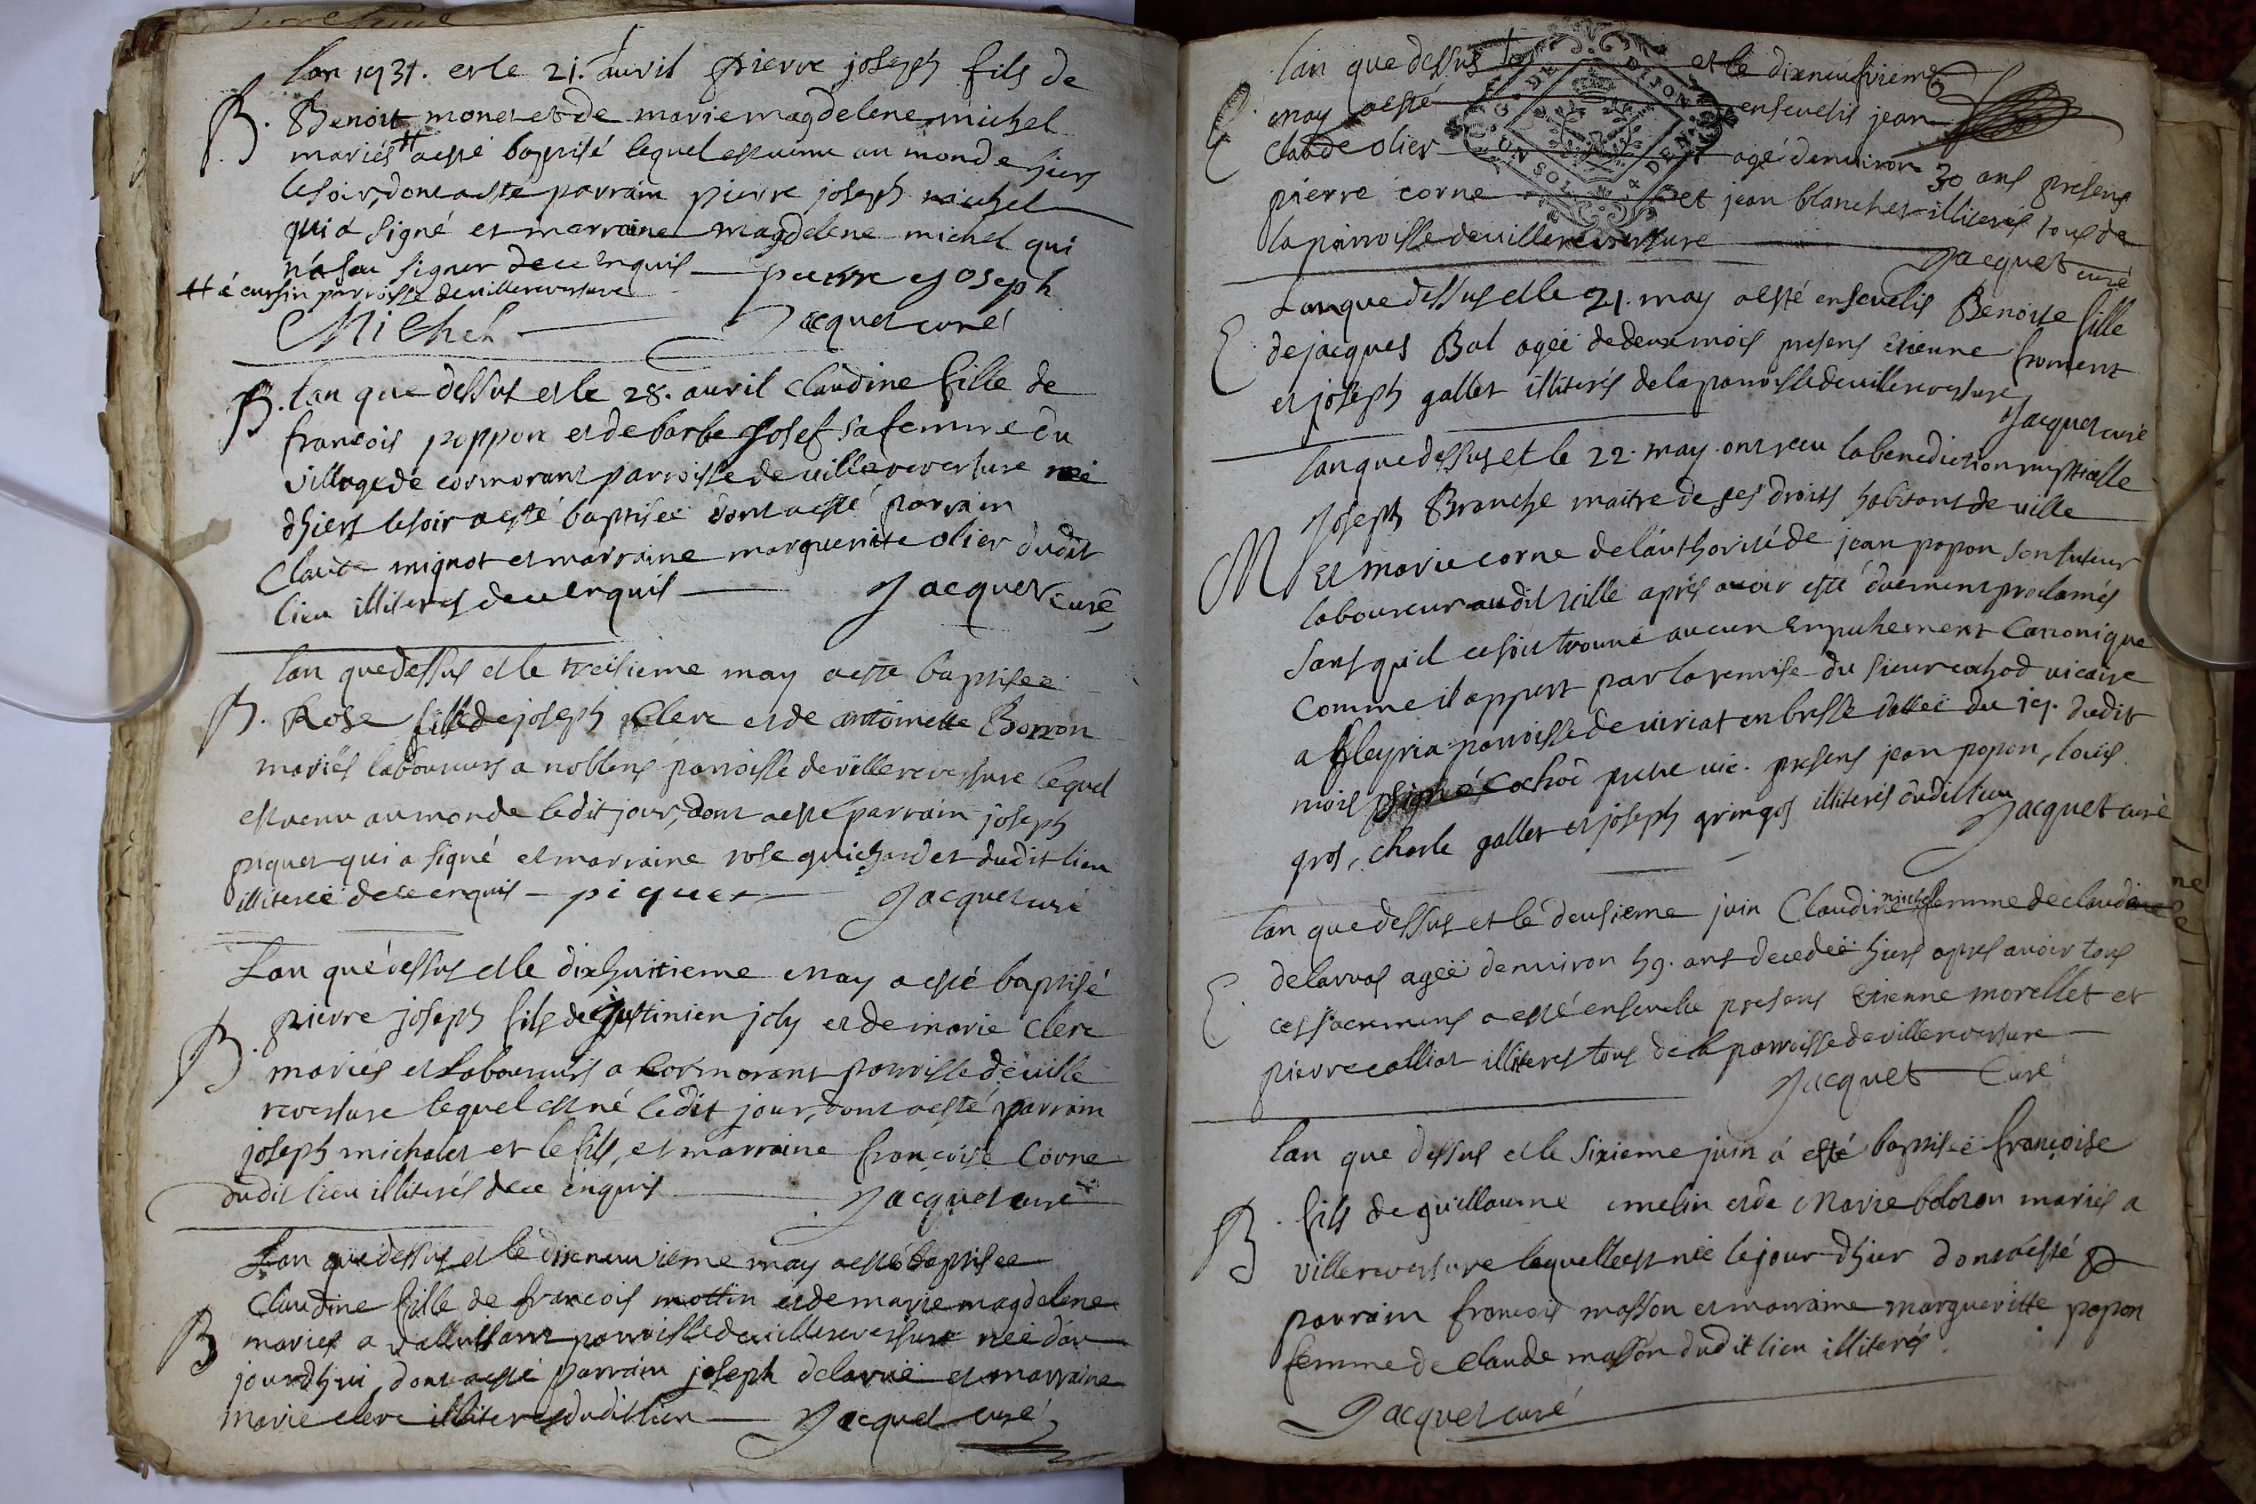 lan 1731. et le 21. auril pierre joseph fils de
B. Benoit monet et de marie magdelene michel
mariés # a esté baptisé lequel est venu au monde hiers
le soir, dont a esté parrain pierre joseph michel
qui á signé et marraine magdelene michel qui
n'a sçu signer de ce enquis — pierre joseph
# á cursin parroisse de villereversure
Michel — Jacquet curé
B. lan que dessus et le 28. auril claudine fille de
françois poppon et de barbe josef sa femme du
village de cormorant parroisse de villereversure née
dhiers le soir a esté baptiseé dont a esté parrain
Claude mignot et marraine marguerite olier dudit
lieu illiteres de ce enquis — Jacquet curé
lan que dessus et le treisieme may a esté baptiseé
B. Rose fille de joseph clerc et de antoinette Borron
mariés laboureurs a noblens parroisse de villereversure lequel
est venu au monde ledit jour, dont a esté parrain joseph
piquet qui a signé et marraine rose guichardet dudit lieu
illitereé de ce enquis — piquet — Jacquet curé
Lan que dessus et le dixhuitieme may a esté baptisé
B. pierre joseph fils de justinien joly et de marie clerc
mariés et Laboureurs a Cormorant parroisse de ville
reversure lequel est né ledit jour, dont a esté parrain
joseph michalet et le fils, et marraine françoise Corne
dudit lieu illiterés de ce enquis — Jacquet curé
Lan que dessus et le disneuvieme may a esté baptisee
Claudine fille de francois mottin et de marie magdelene
B mariés a parroisse de villereversure neé dau
jourdhui, dont a esté parrain joseph delarue et marraine
marie clerc illiteres dudit lieu — Jacquet curé
lan que dessus et le dixneufvieme
E. may a esté ensevelis jean
Claude olier agé denviron 30 ans presens
pierre corne et jean blanchet illiterés tous de
la parroisse de villereversure — Jacquet curé
G. DE DIJON
UN SOL 4 DEN
Lan que dessus et le 21. may a esté ensevelis Benoite fille
E de jacques Bal ageé de deux mois presens etienne froment
et joseph gallet illiterés de la parroisse de villereversure
Jacquet curé
lan que dessus et le 22. may ont receu la benediction nuptialle
Joseph Branche maitre de ses droits habitant de ville
M et marie corne de láuthorité de jean popon son tuteur
laboureur audit ville aprés avoir esté duement proclamés
sans quil ce soit trouvé aucun empechement Canonique
comme il appert par la remise du sieur cochod vicaire
a fleyria parroisse de viriat en bresse datteé du 19. dudit
mois signé Cochod pretre vic. presens jean popon, louis
gros, charle gallet et joseph gringos illiterés dudit lieu
Jacquet curé
lan que dessus et le deusieme juin Claudine michel femme de claudine
E. delarvas ageé denviron 59. ans decedeé hiers apres avoir tous
ces sacremens a esté ensevelie presens etienne morellet et
pierre colliat illiteres tous de la parroisse de villereversure
Jacquet Curé
lan que dessus et le sixieme juin á esté baptiseé françoise
B. fille de guillaume emelin et de Marie boloson mariés a
villereversure laquelle est neé le jour dhier dont a esté
parrain francois masson et marraine marguerite popon
femme de claude masson dudit lieu illiterés.
Jacquet curé